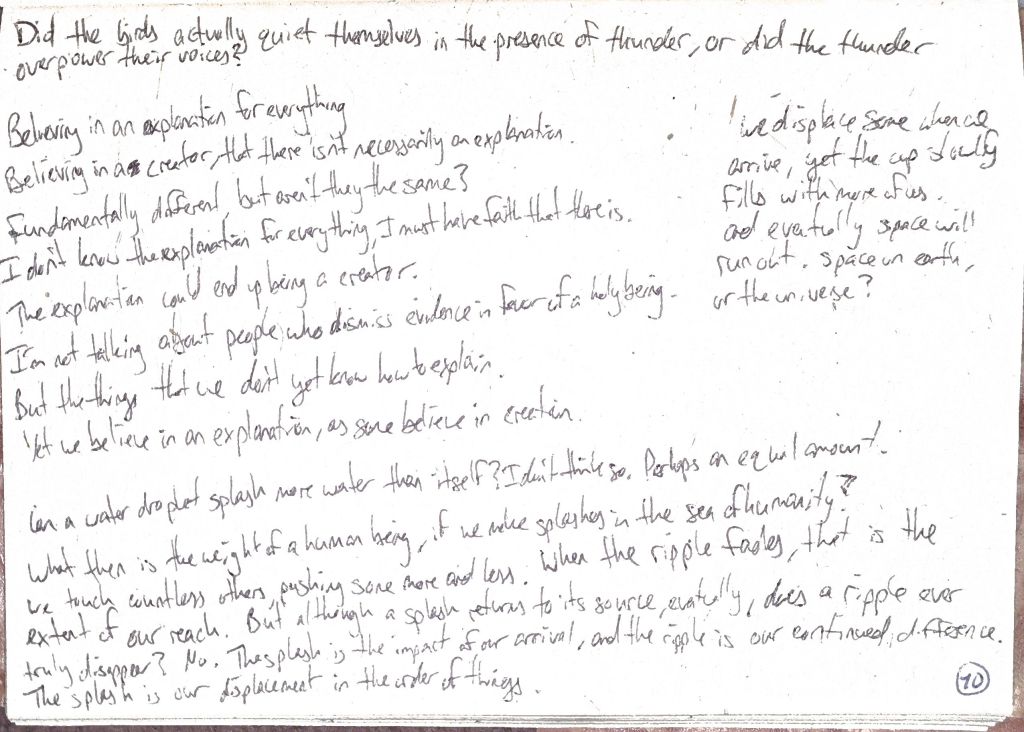 Did the birds actually quiet themselves in the presence of thunder, or did the thunder
overpower their voices?
Believing in an explanation for everything
Believing in a creator, that there isn't necessarily an explanation.
Fundamentally different, but aren't they the same?
I don't know the explanation for everything, I must have faith that there is.
The explanation could end up being a creator.
I'm not talking about people who dismiss evidence in favor of a holy being.
But the things that we don't yet know how to explain.
Yet we believe in an explanation, as some believe in creation.
we displace some when we
arrive, yet the cup slowly
fills with more of us.
and eventully space will
run out. space on earth,
or the universe?
Can a water droplet splash more water than itself? I don't think so. Perhaps an equal amount.
What then is the weight of a human being, if we make splashes in the sea of humanity?
we touch countless others, pushing some more and less. When the ripple fades, that is the
extent of our reach. But although a splash returns to its source, evatully, does a ripple ever
truly disappear? No. The splash is the impact of our arrival, and the ripple is our continued difference.
The splash is our displacement in the order of things.
10